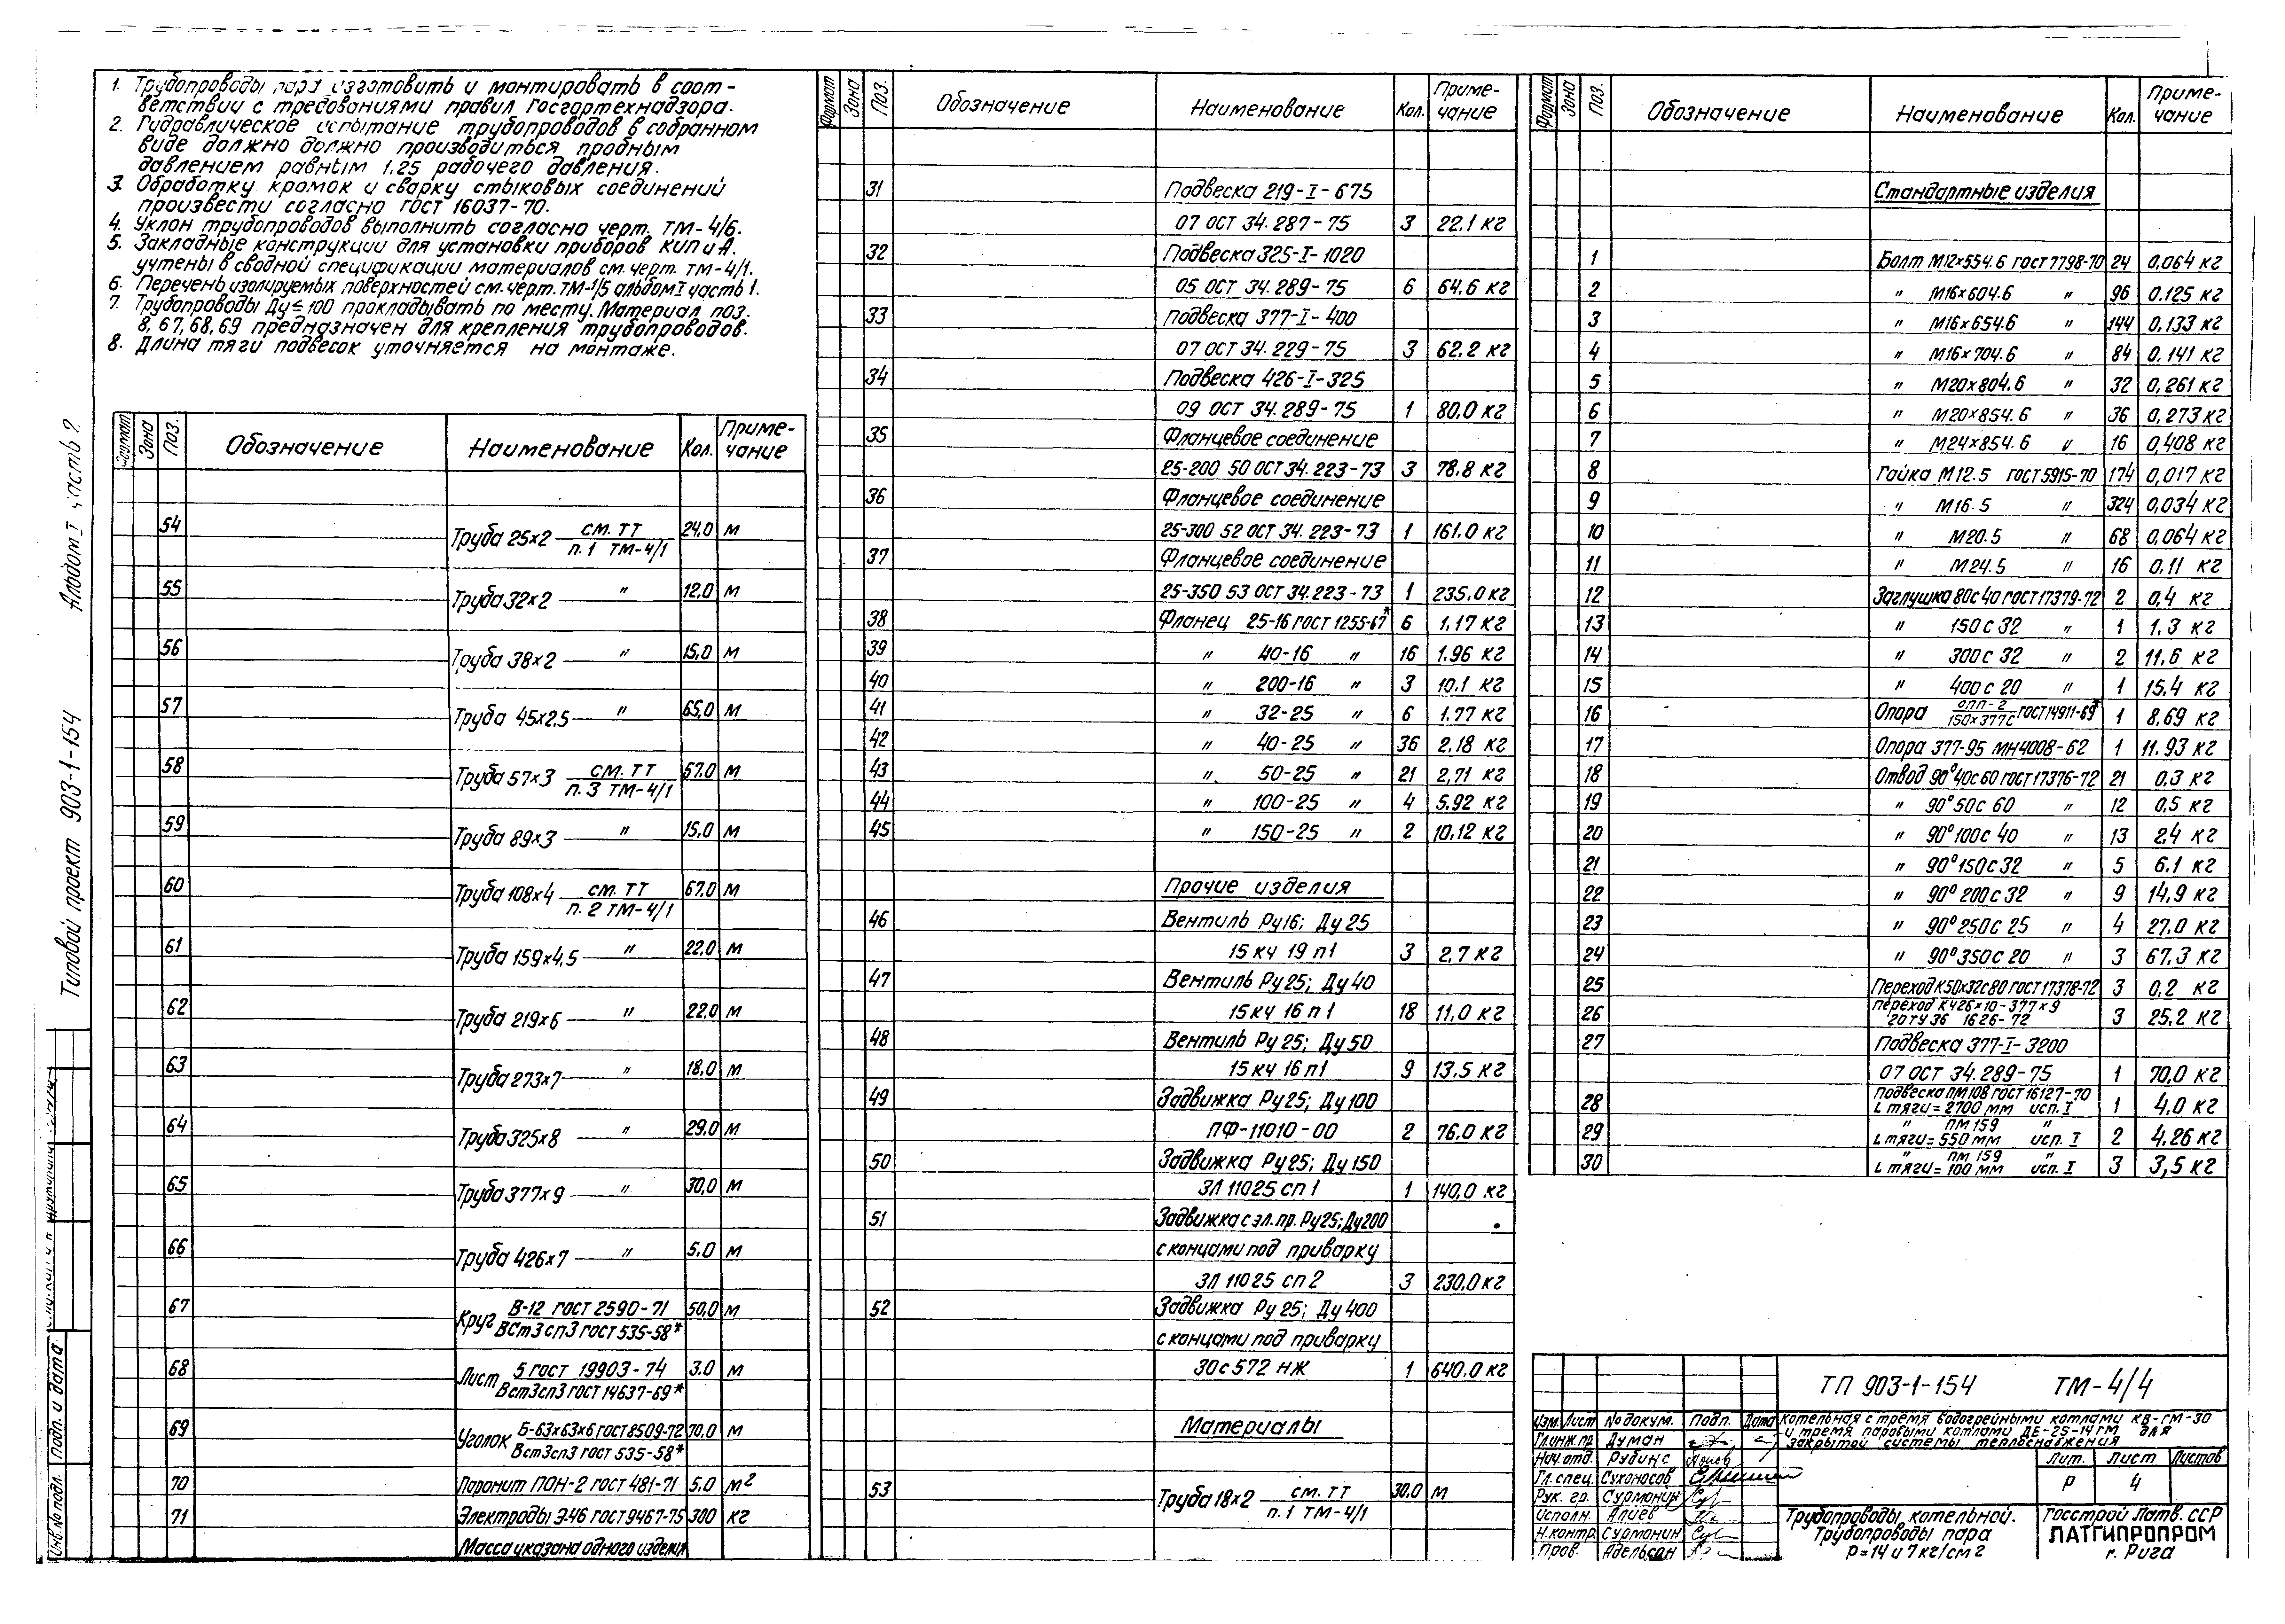 1. Трубопроводы пара изготовить и монтировать в соот-
ветствии с требованиями правил Госгортехнадзора.
2. Гидравлическое испытание трубопроводов в собранном
виде должно должно производиться пробным
давлением равным 1,25 рабочего давления.
3. Обработку кромок и сварку стыковых соединений
произвести согласно ГОСТ 16037-70.
4. Уклон трубопроводов выполнить согласно черт. ТМ-4/6.
5. Закладные конструкции для установки приборов КИП и А.
учтены в сводной спецификации материалов см. черт. ТМ-4/1.
6. Перечень изолируемых поверхностей см. черт. ТМ-1/5 альбом I часть 1.
7. Трубопроводы Ду≤100 прокладывать по месту. Материал поз.
8, 67, 68, 69 предназначен для крепления трубопроводов.
8. Длина тяги подвесок уточняется на монтаже.
Формат Зона Поз. Обозначение Наименование Кол. Приме-чание
54 Труба 25×2 см. ТТ п.1 ТМ-4/1 24,0 м
55 Труба 32×2 " 12,0 м
56 Труба 38×2 " 15,0 м
57 Труба 45×2,5 " 65,0 м
58 Труба 57×3 см. ТТ п.3 ТМ-4/1 67.0 м
59 Труба 89×3 " 15,0 м
60 Труба 108×4 см. ТТ п.2 ТМ-4/1 67,0 м
61 Труба 159×4,5 " 22,0 м
62 Труба 219×6 " 22,0 м
63 Труба 273×7 " 18,0 м
64 Труба 325×8 " 29,0 м
65 Труба 377×9 " 30,0 м
66 Труба 426×7 " 5.0 м
67 Круг В-12 ГОСТ 2590-71 ВСт3сп3 ГОСТ 535-58* 50,0 м
68 Лист 5 ГОСТ 19903-74 ВСт3сп3 ГОСТ 14637-69* 3.0 м
69 Уголок Б-63×63×6 ГОСТ 8509-72 ВСт3сп3 ГОСТ 535-58* 70,0 м
70 Паронит ПОН-2 ГОСТ 481-71 5,0 м2
71 Электроды Э-46 ГОСТ 9467-75 300 кг
Масса указана одного изделия
Формат Зона Поз. Обозначение Наименование Кол. Приме-чание
31 Подвеска 219-I-675
07 ОСТ 34.287-75 3 22.1 кг
32 Подвеска 325-I-1020
05 ОСТ 34.289-75 6 64.6 кг
33 Подвеска 377-I-400
07 ОСТ 34.229-75 3 62.2 кг
34 Подвеска 426-I-325
09 ОСТ 34.289-75 1 80,0 кг
35 Фланцевое соединение
25-200 50 ОСТ 34.223-73 3 78.8 кг
36 Фланцевое соединение
25-300 52 ОСТ 34.223-73 1 161.0 кг
37 Фланцевое соединение
25-350 53 ОСТ 34.223-73 1 235.0 кг
38 Фланец 25-16 ГОСТ 1255-67* 6 1,17 кг
39 " 40-16 " 16 1.96 кг
40 " 200-16 " 3 10.1 кг
41 " 32-25 " 6 1.77 кг
42 " 40-25 " 36 2,18 кг
43 " 50-25 " 21 2,71 кг
44 " 100-25 " 4 5.92 кг
45 " 150-25 " 2 10,12 кг
Прочие изделия
46 Вентиль Ру16; Ду 25
15 кч 19 п1 3 2,7 кг
47 Вентиль Ру25; Ду 40
15 кч 16 п1 18 11,0 кг
48 Вентиль Ру 25; Ду 50
15 кч 16 п1 9 13.5 кг
49 Задвижка Ру25; Ду100
ПФ-11010-00 2 76.0 кг
50 Задвижка Ру25; Ду150
ЗЛ 11025 сп 1 1 140,0 кг
51 Задвижка с эл. пр. Ру25; Ду200
с концами под приварку
ЗЛ 11025 сп 2 3 230.0 кг
52 Задвижка Ру 25; Ду 400
с концами под приварку
30с 572 нж 1 640.0 кг
Материалы
53 Труба 18×2 см. ТТ п.1 ТМ-4/1 30.0 м
Формат Зона Поз. Обозначение Наименование Кол. Приме-чание
Стандартные изделия
1 Болт М12×554.6 ГОСТ 7798-70 24 0.064 кг
2 " М16×604.6 " 96 0.125 кг
3 " М16×654.6 " 144 0.133 кг
4 " М16×704.6 " 84 0.141 кг
5 " М20×804.6 " 32 0,261 кг
6 " М20×854.6 " 36 0,273 кг
7 " М24×854.6 " 16 0,408 кг
8 Гайка М12.5 ГОСТ 5915-70 174 0,017 кг
9 " М16.5 " 324 0,034 кг
10 " М20.5 " 68 0,064 кг
11 " М24.5 " 16 0,11 кг
12 Заглушка 80с 40 ГОСТ 17379-72 2 0,4 кг
13 " 150 с 32 " 1 1,3 кг
14 " 300 с 32 " 2 11,6 кг
15 " 400 с 20 " 1 15,4 кг
16 Опора ОПП-2 150×377с ГОСТ 14911-69* 1 8,69 кг
17 Опора 377-95 МН 4008-62 1 11.93 кг
18 Отвод 90° 40с 60 ГОСТ 17376-72 21 0.3 кг
19 " 90° 50с 60 " 12 0,5 кг
20 " 90° 100с 40 " 13 2,4 кг
21 " 90° 150с 32 " 5 6.1 кг
22 " 90° 200 с 32 " 9 14,9 кг
23 " 90° 250 с 25 " 4 27,0 кг
24 " 90° 350 с 20 " 3 67,3 кг
25 Переход К50×32с80 ГОСТ 17378-72 3 0,2 кг
26 Переход К 426×10-377×9 20 ТУ 36 1626-72 3 25,2 кг
27 Подвеска 377-I-3200
07 ОСТ 34.289-75 1 70,0 кг
28 Подвеска ПМ108 ГОСТ 16127-70 L тяги = 2700 мм исп. I 1 4,0 кг
29 " ПМ 159 " L тяги = 550 мм исп. I 2 4,26 кг
30 " ПМ 159 " L тяги = 100 мм исп. I 3 3,5 кг
ТП 903-1-154 ТМ-4/4
Изм. Лист № докум. Подп. Дата
Гл. инж. пр. Думан
Нач. отд. Рубинс
Гл. спец. Сухоносов
Рук. гр. Сурмонин
Исполн. Алиев
Н. контр. Сурмонин
Пров. Адельсан
Котельная с тремя водогрейными котлами КВ-ГМ-30
и тремя паровыми котлами ДЕ-25-14ГМ для
закрытой системы теплоснабжения
Лит. Лист Листов
Р 4
Трубопроводы котельной.
Трубопроводы пара
Р=14 и 7 кг/см2
Госстрой Латв. ССР
ЛАТГИПРОПРОМ
г. Рига
Типовой проект 903-1-154 Альбом I часть 2
Инв. № подл. Подп. и дата